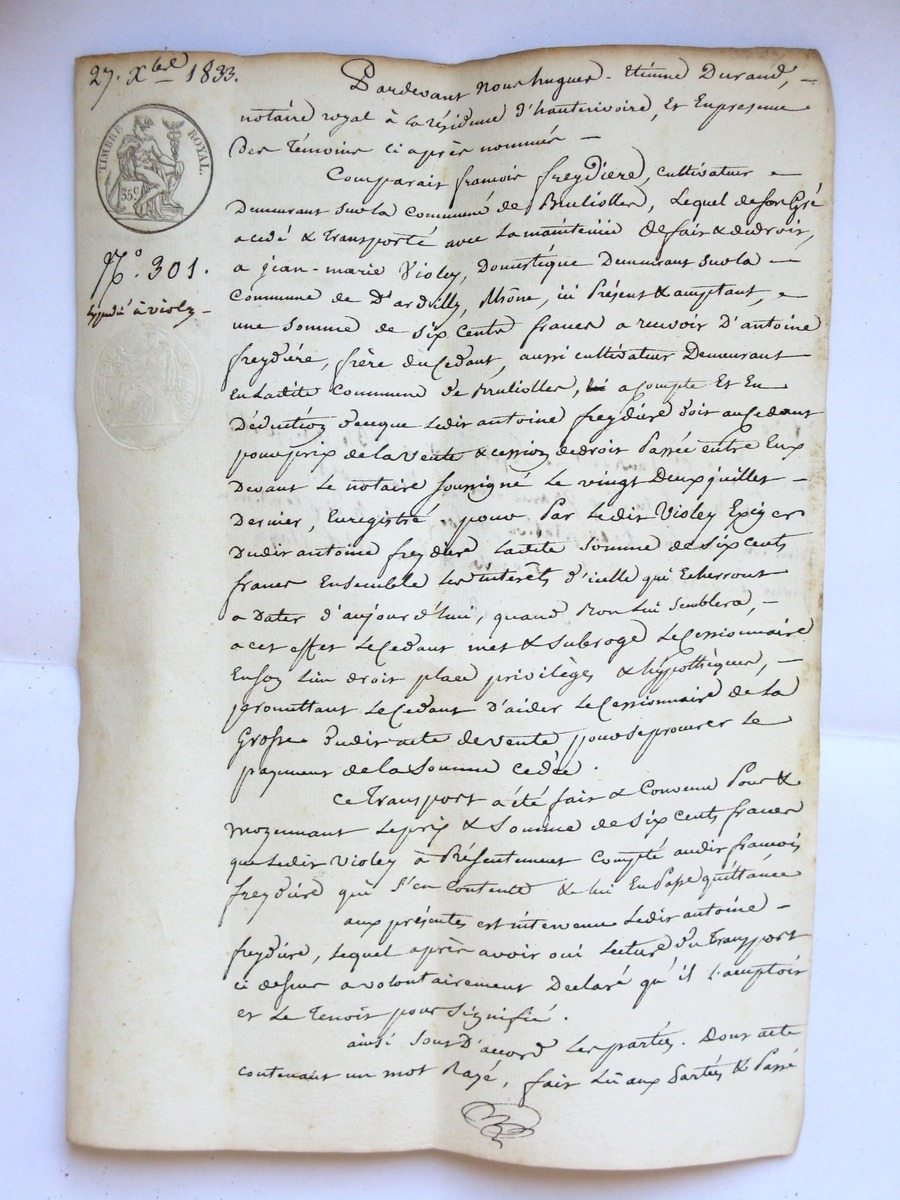 27. Xbre 1833.
TIMBRE ROYAL.
35 C
N.° 301.
expédié à violey
Pardevant nous hugues-Etienne Durand,
notaire royal à la résidence d'hauterivoire, Et En presence
Des Témoins ci après nommés
Comparait francois freydiere, cultivateur
Demeurant sur la Commune de Brulioller, Lequel de son Gré
a cedé & Transporté avec La maintenue de fait & de droit,
a jean-marie Violey, Domestique Demeurant sur la
Commune de D'ardilly, Rhône, ici Présent & acceptant,
une Somme de Six Cents francs a recevoir D'antoine
freydiére, frère du Cedant, aussi cultivateur Demeurant
En Ladite Commune de Brulioller, a compte Et En
Déduction de ce que Ledit antoine freydiére doit au Cedant
pour prix de la vente & cession de droit Passée entre Eux
Devant Le notaire soussigné Le vingt Deux juillet
Dernier, Enregistré pour Par Ledit Violey Exiger
Dudit antoine freydiére Ladite Somme de Six Cents
francs Ensemble Les intérêts d'icelle qui Echerront
a Dater d'aujourd'hui, quand Bon Lui Semblera,
a cet effet Le Cedant met & Subroge Le Cessionnaire
En son Lieu droit place privilèges & hypothèques,
promettant Le Cedant D'aider Le Cessionnaire de La
Grosse dudit acte de vente pour se procurer Le
payement de la Somme cedée.
Ce Transport a été fait & Convenu Pour &
moyennant Le prix & Somme de Six Cents francs
que Ledit Violey à Présentement Compté audit francois
freydiére qui S'en Contente & lui En Passe quittance
aux présentes est intervenu Ledit antoine
freydiére, Lequel après avoir oui Lecture du Transport
ci dessus a volontairement Declaré qu'il L'acceptoit
et Le Tenoit pour Signifié.
ainsi Sont D'accord Les parties. Dont acte
contenant un mot Rayé, fait Lu aux Parties & Passé